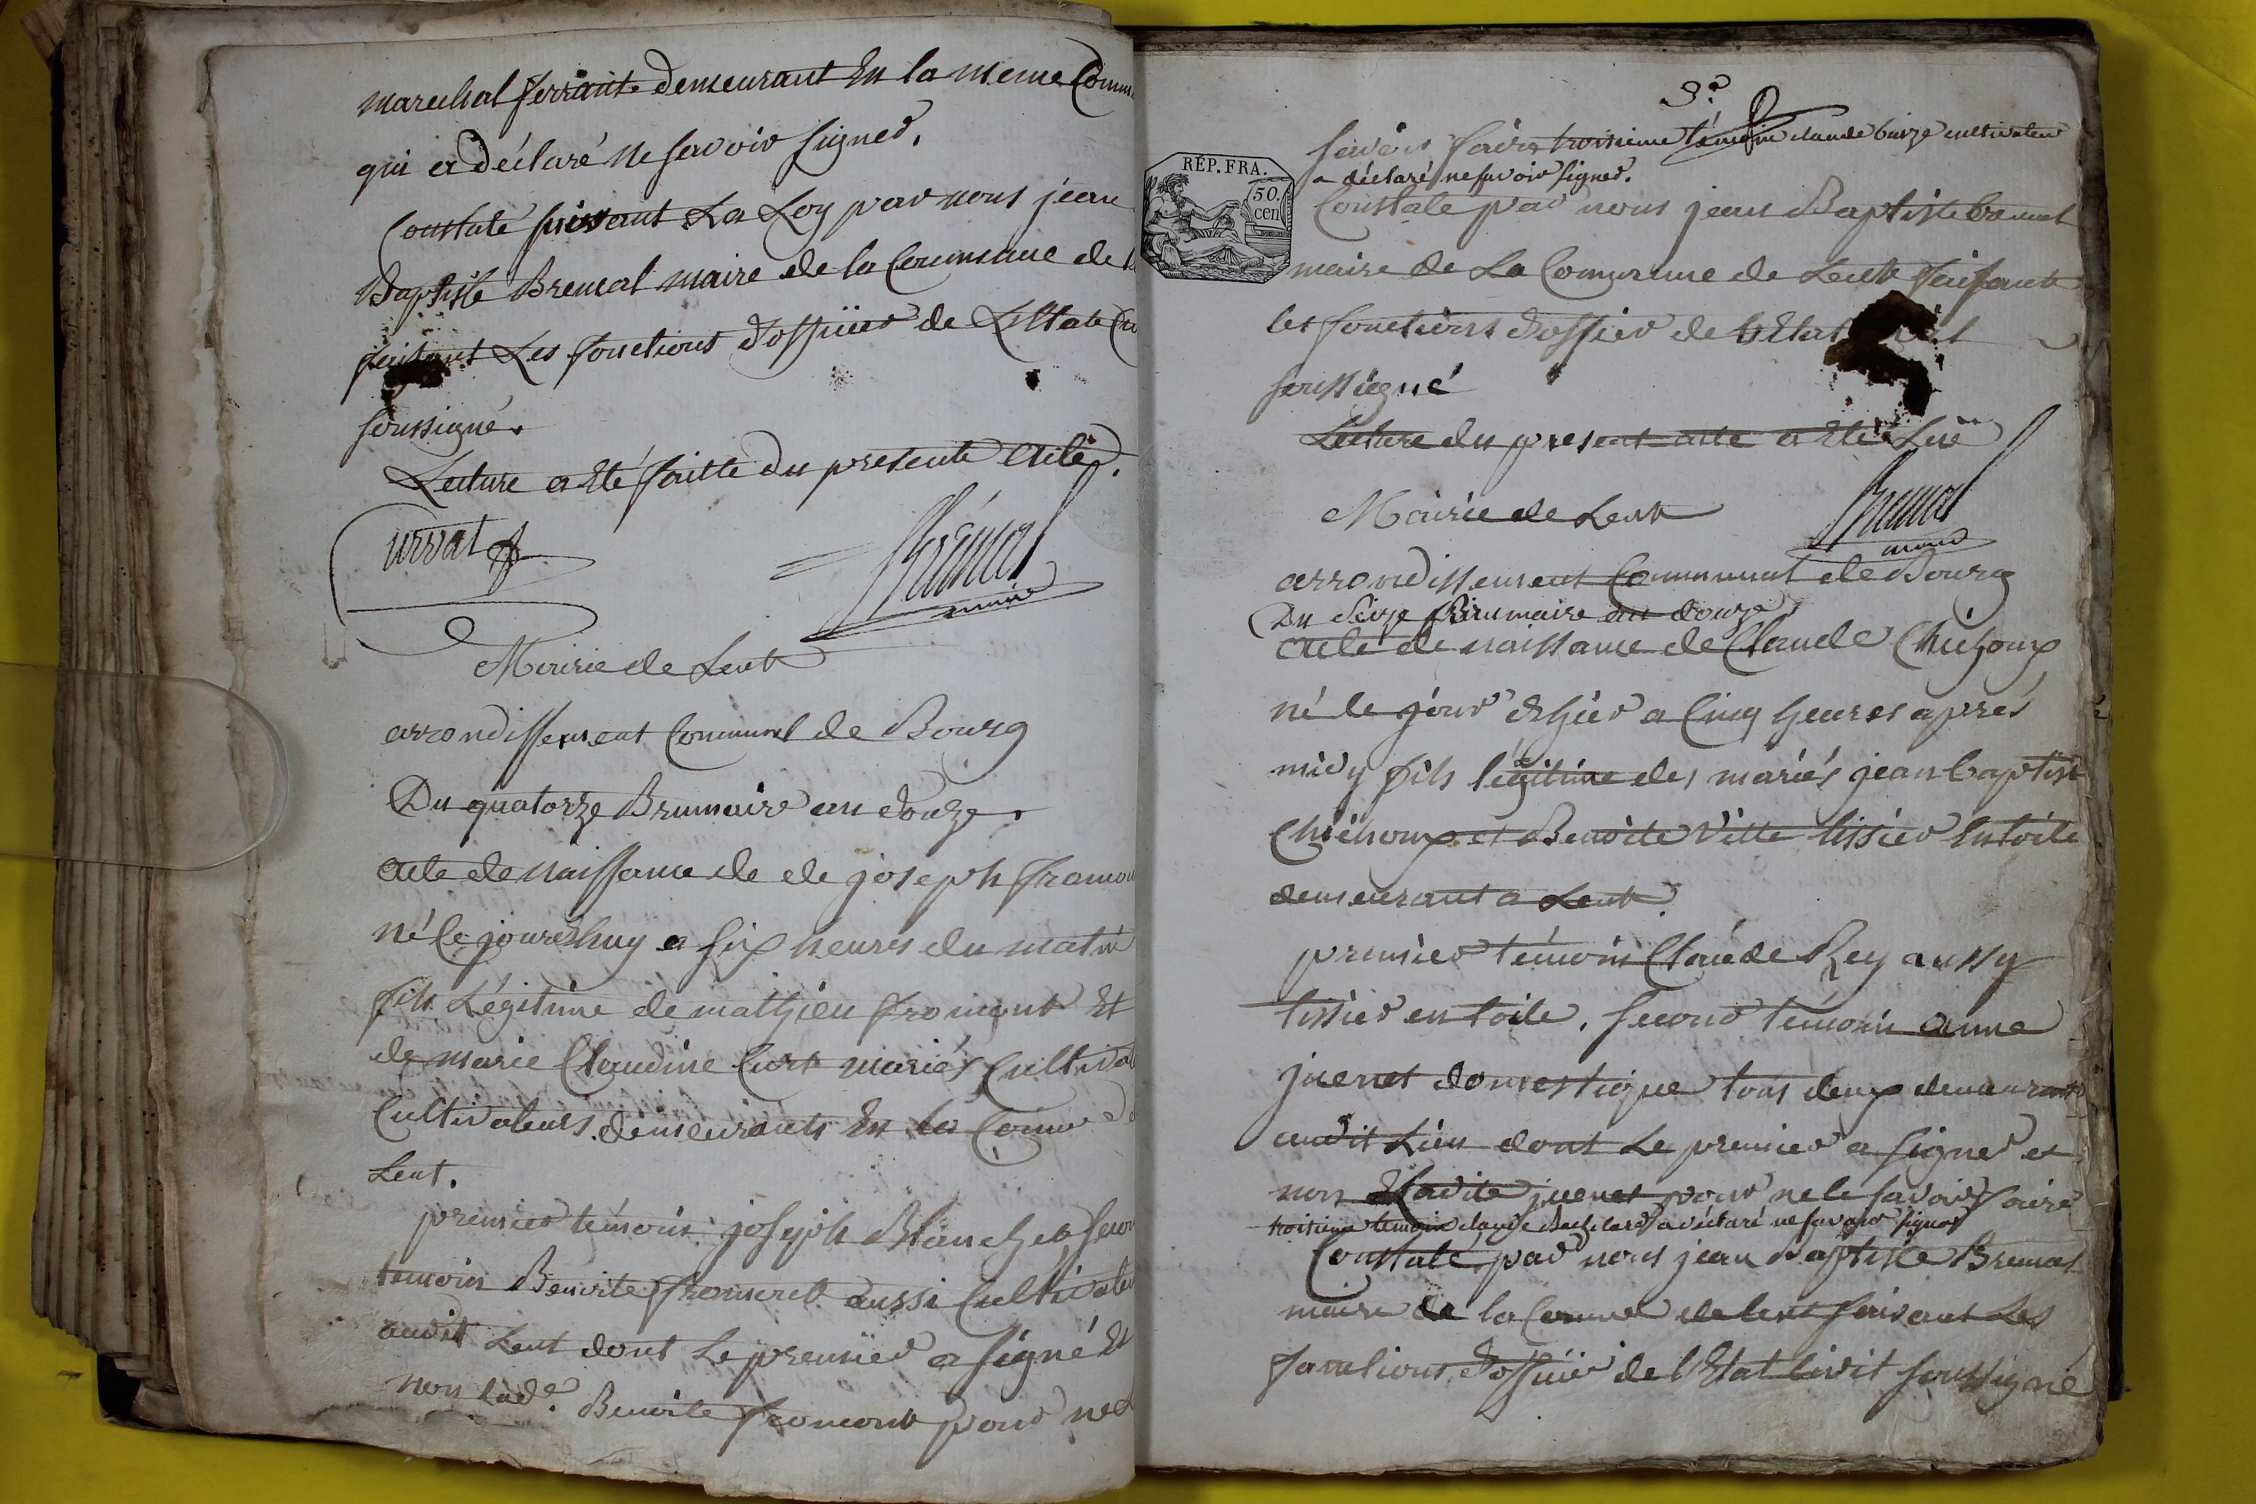 marechal ferrante demeurant En la meme Comm
qui a déclaré ne savoir signer.
Constaté suivant La Loy par nous jean
Baptiste Bremal maire de la Commune de
faisant Les fonctions d'offiier de L'Etate
soussigné.
Lecture a Eté faitte du presente acte.
urvat Brémal
maire
Mairie de Lent
arrondissement Communal de Bourg
Du quatorze Brumaire an douze.
acte de naissance de de joseph
né le jourdhuy a six heures du matin
fils Légitime de mathieu fromont Et
de marie Claudine Curt mariés
Cultivateurs demeurants En la Comme
Lent.
premier témoin joseph Blanchet
temoin Benoite fromont aussi
audit Lent dont Le premier a signé Et
non lade. Benoite fromont pour
3e
savoir faire troisieme témoin claude cultivateur
a déclaré ne savoir signer.
RÉP. FRA.
50.
cen
Constate par nous jean Baptiste
maire de La Commune de Lent faisant
les fonctions d'offier de L'Etat
soussigné
Lecture du present acte a Eté Lue
Mairie de Lent Brémal
maire
arrondissement Communal de Bourg
Du seize Brumaire an douze
acte de naissance de Claude Chichoux
né le jour d'hier a Cinq heures aprés
midy fils légitime des mariés jean baptist
Chichoux et Benoite Vitte tissier En toile
demeurant a Lent
premier témoin Claude Rey aussy
tissier en toile. second témoin anne
juenet domestique tous deux demeurant
audit Lieu dont Le premier a signer et
non Ladite juenet pour ne le savoir faire
troisieme temoin claude a déclaré ne savoir signer
Constate par nous jean Baptiste Bremal
maire de la Comme de lent faisant Les
fonctions d'offiier de l'Etat Civil soussigné